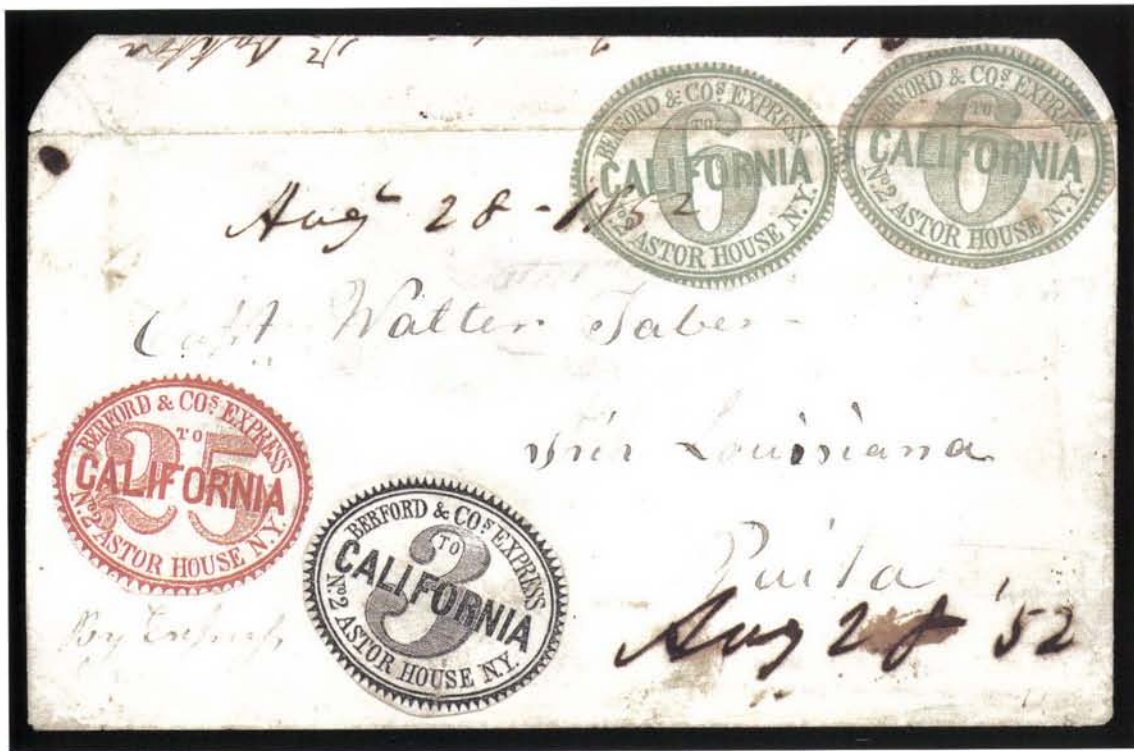 BERFORD & COS EXPRESS
TO
6
CALIFORNIA
No. 2 ASTOR HOUSE N.Y.
BERFORD & COS EXPRESS
TO
6
CALIFORNIA
No. 2 ASTOR HOUSE N.Y.
Augt 28 - 1852
Capt Walter Taber
Ship Louisiana
BERFORD & COS EXPRESS
TO
25
CALIFORNIA
No. 2 ASTOR HOUSE N.Y.
BERFORD & COS EXPRESS
TO
3
CALIFORNIA
No. 2 ASTOR HOUSE N.Y.
Paita
By Express
Aug 28 '52